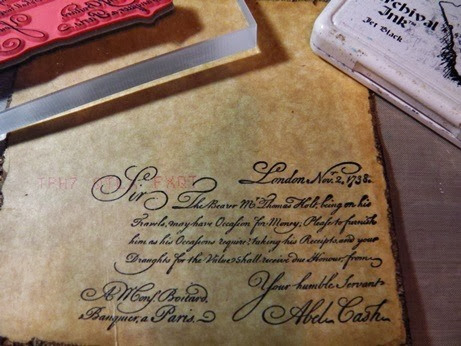 Archival
Ink™
Jet Black
London Nov.r 2, 1738.
Sir
The Bearer Mr. Thomas Hole, being on his
Travels, may have Occasion for Money, Please to furnish
him as his Occasions require: taking his Receipts, and your
Draughts for the Value shall receive due Honour, from
Your humble Servant
A Monsr. Boitard,
Banquier, a Paris.
Abel Cash